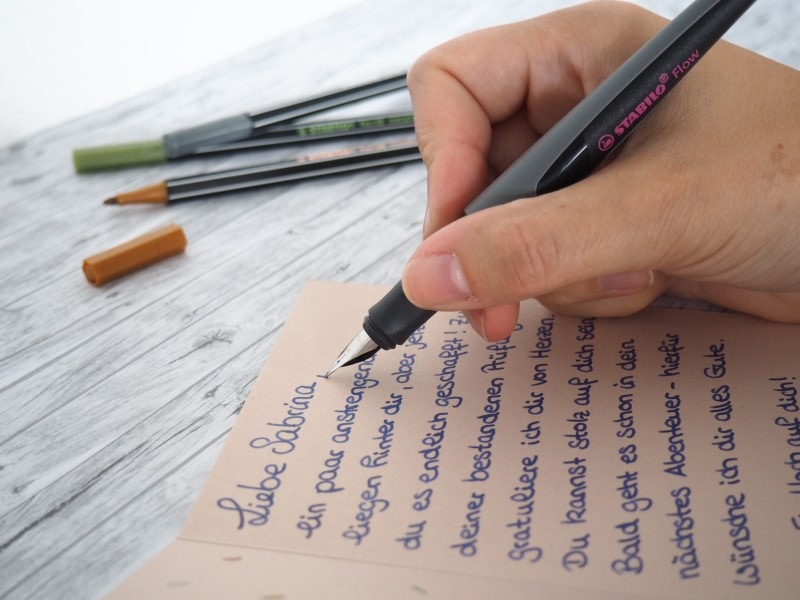 STABILO Flow
Liebe Sabrina
ein paar
liegen hinter dir, aber
du es endlich geschafft!
deiner bestandenen
gratuliere ich dir von Herzen.
Du kannst stolz auf dich sein
Bald geht es schon in dein
nächstes Abenteuer - hierfür
wünsche ich dir alles Gute.
Hoch auf dich!